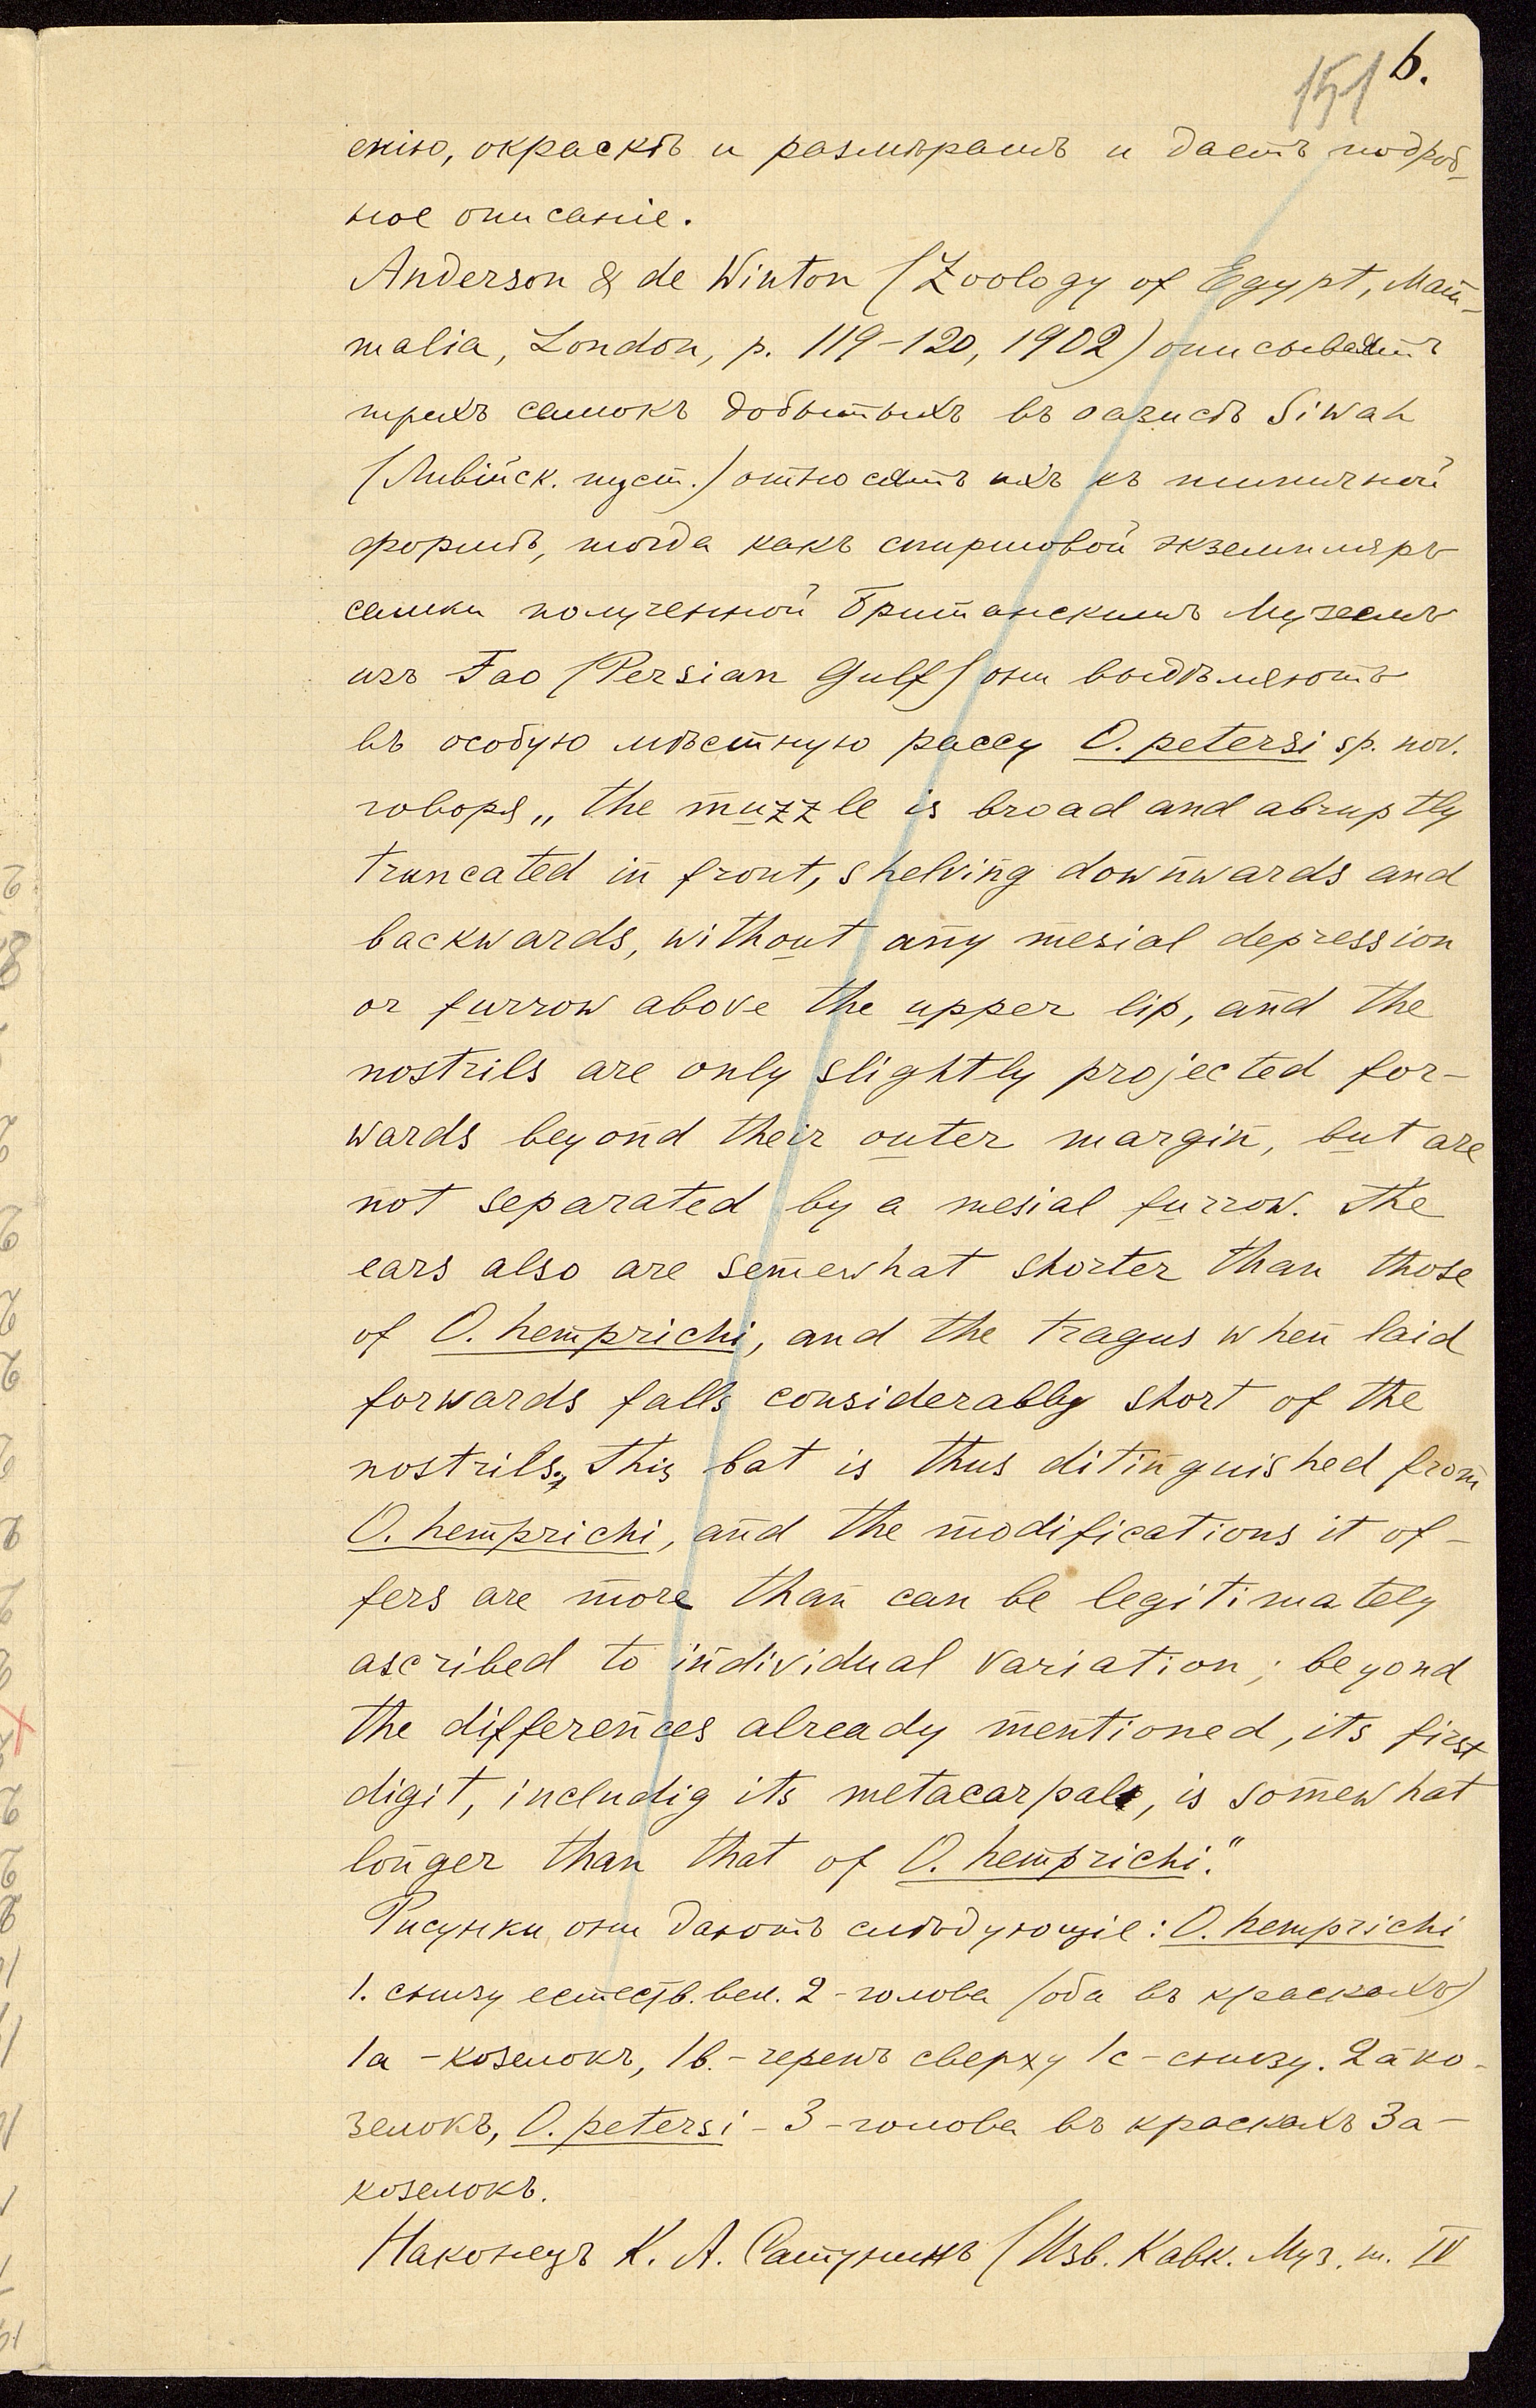 151 6.
енію, окраскѣ и размѣрамъ и даетъ подроб-
ное описаніе.
Anderson & de Winton (Zoology of Egypt, Mam-
malia, London, p. 119-120, 1902) описываютъ
трехъ самокъ добытыхъ въ оазисѣ Siwah
(Ливійск. пуст.) относятъ ихъ къ типичной
формѣ, тогда какъ спиртовой экземпляръ
самки полученной Британскимъ Музеемъ
изъ Fao (Persian Gulf) они выдѣляютъ
въ особую мѣстную рассу O. petersi sp. nov.
говоря „the muzzle is broad and abruptly
truncated in front, shelving downwards and
backwards, without any mesial depression
or furrow above the upper lip, and the
nostrils are only slightly projected for-
wards beyond their outer margin, but are
not separated by a mesial furrow. The
ears also are semewhat shorter than those
of O. hemprichi, and the tragus when laid
forwards falls considerably short of the
nostrils; This bat is thus ditinguished from
O. hemprichi, and the modifications it of-
fers are more than can be legitimately
ascribed to individual variation; beyond
the differences already mentioned, its first
digit, includig its metacarpal, is somewhat
longer than that of O. hemprichi."
Рисунки они даютъ слѣдующіе: O. hemprichi
1. снизу естеств. вел. 2-голова (оба въ краскахъ)
1a - козелокъ, 1b. - черепъ сверху 1c - снизу. 2a ко-
зелокъ, O. petersi - 3 - голова въ краскахъ 3a -
козелокъ.
Наконецъ К. А. Сатунинъ (Изв. Кавк. Муз. т. IV